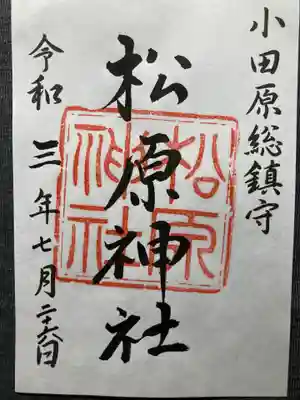 小田原総鎮守
松原神社
令和三年七月二十六日
松原神社